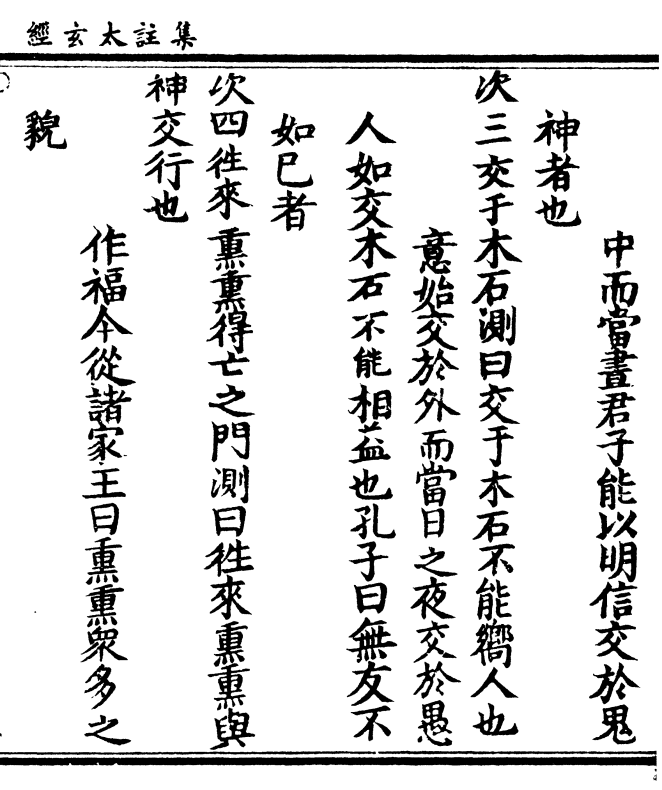 集註太玄經
中而當晝君子能以明信交於鬼
神者也
次三交于木石測曰交于木石不能嚮人也
意始交於外而當日之夜交於愚
人如交木石不能相益也孔子曰無友不
如已者
次四徃來熏熏得亡之門測曰徃來熏熏與
神交行也
作福今從諸家王曰熏熏衆多之
貌